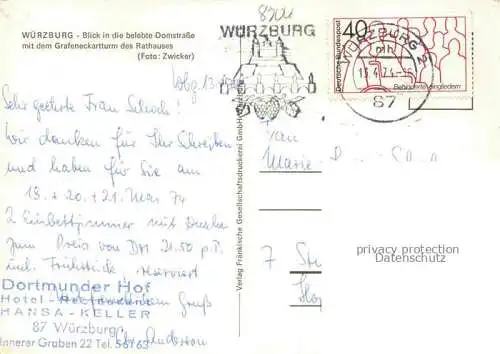 WÜRZBURG - Blick in die belebte Domstraße
mit dem Grafeneckartturm des Rathauses
(Foto: Zwicker)
8701
WÜRZBURG
WÜRZBURG 2
mh
13.4.74-16
87
Deutsche Bundespost
40
Behinderte eingliedern
Wbg 13.4.74
Sehr geehrte Frau Schoch!
Wir danken für Ihr Schreiben
und haben für Sie am
19. + 20. + 21. Mai 74
2 Einbettzimmer mit Dusche
zum Preis von DM 21.50 p.P.
incl. Frühstück, reserviert
Gruß
Dortmunder Hof
Hotel
HANSA-KELLER
87 Würzburg
Innerer Graben 22 Tel. 56163
Verlag Fränkische Gesellschaftsdruckerei GmbH
Marie
7 St
privacy protection
Datenschutz